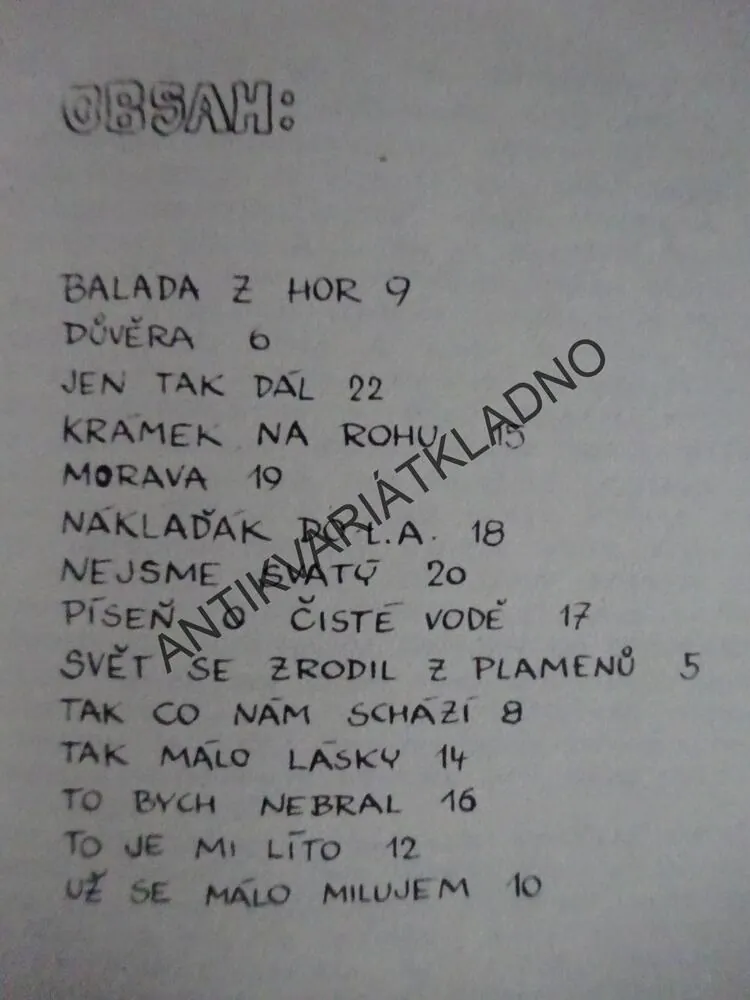 OBSAH:
BALADA Z HOR 9
DŮVĚRA 6
JEN TAK DÁL 22
KRÁMEK NA ROHU 15
MORAVA 19
NÁKLAĎÁK DO L.A. 18
NEJSME SVATÝ 20
PÍSEŇ O ČISTÉ VODĚ 17
SVĚT SE ZRODIL Z PLAMENŮ 5
TAK CO NÁM SCHÁZÍ 8
TAK MÁLO LÁSKY 14
TO BYCH NEBRAL 16
TO JE MI LÍTO 12
UŽ SE MÁLO MILUJEM 10
ANTIKVARIÁTKLADNO